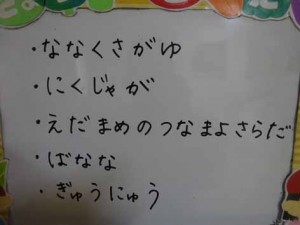 ・ななくさがゆ
・にくじゃが
・えだまめのつなまよさらだ
・ばなな
・ぎゅうにゅう